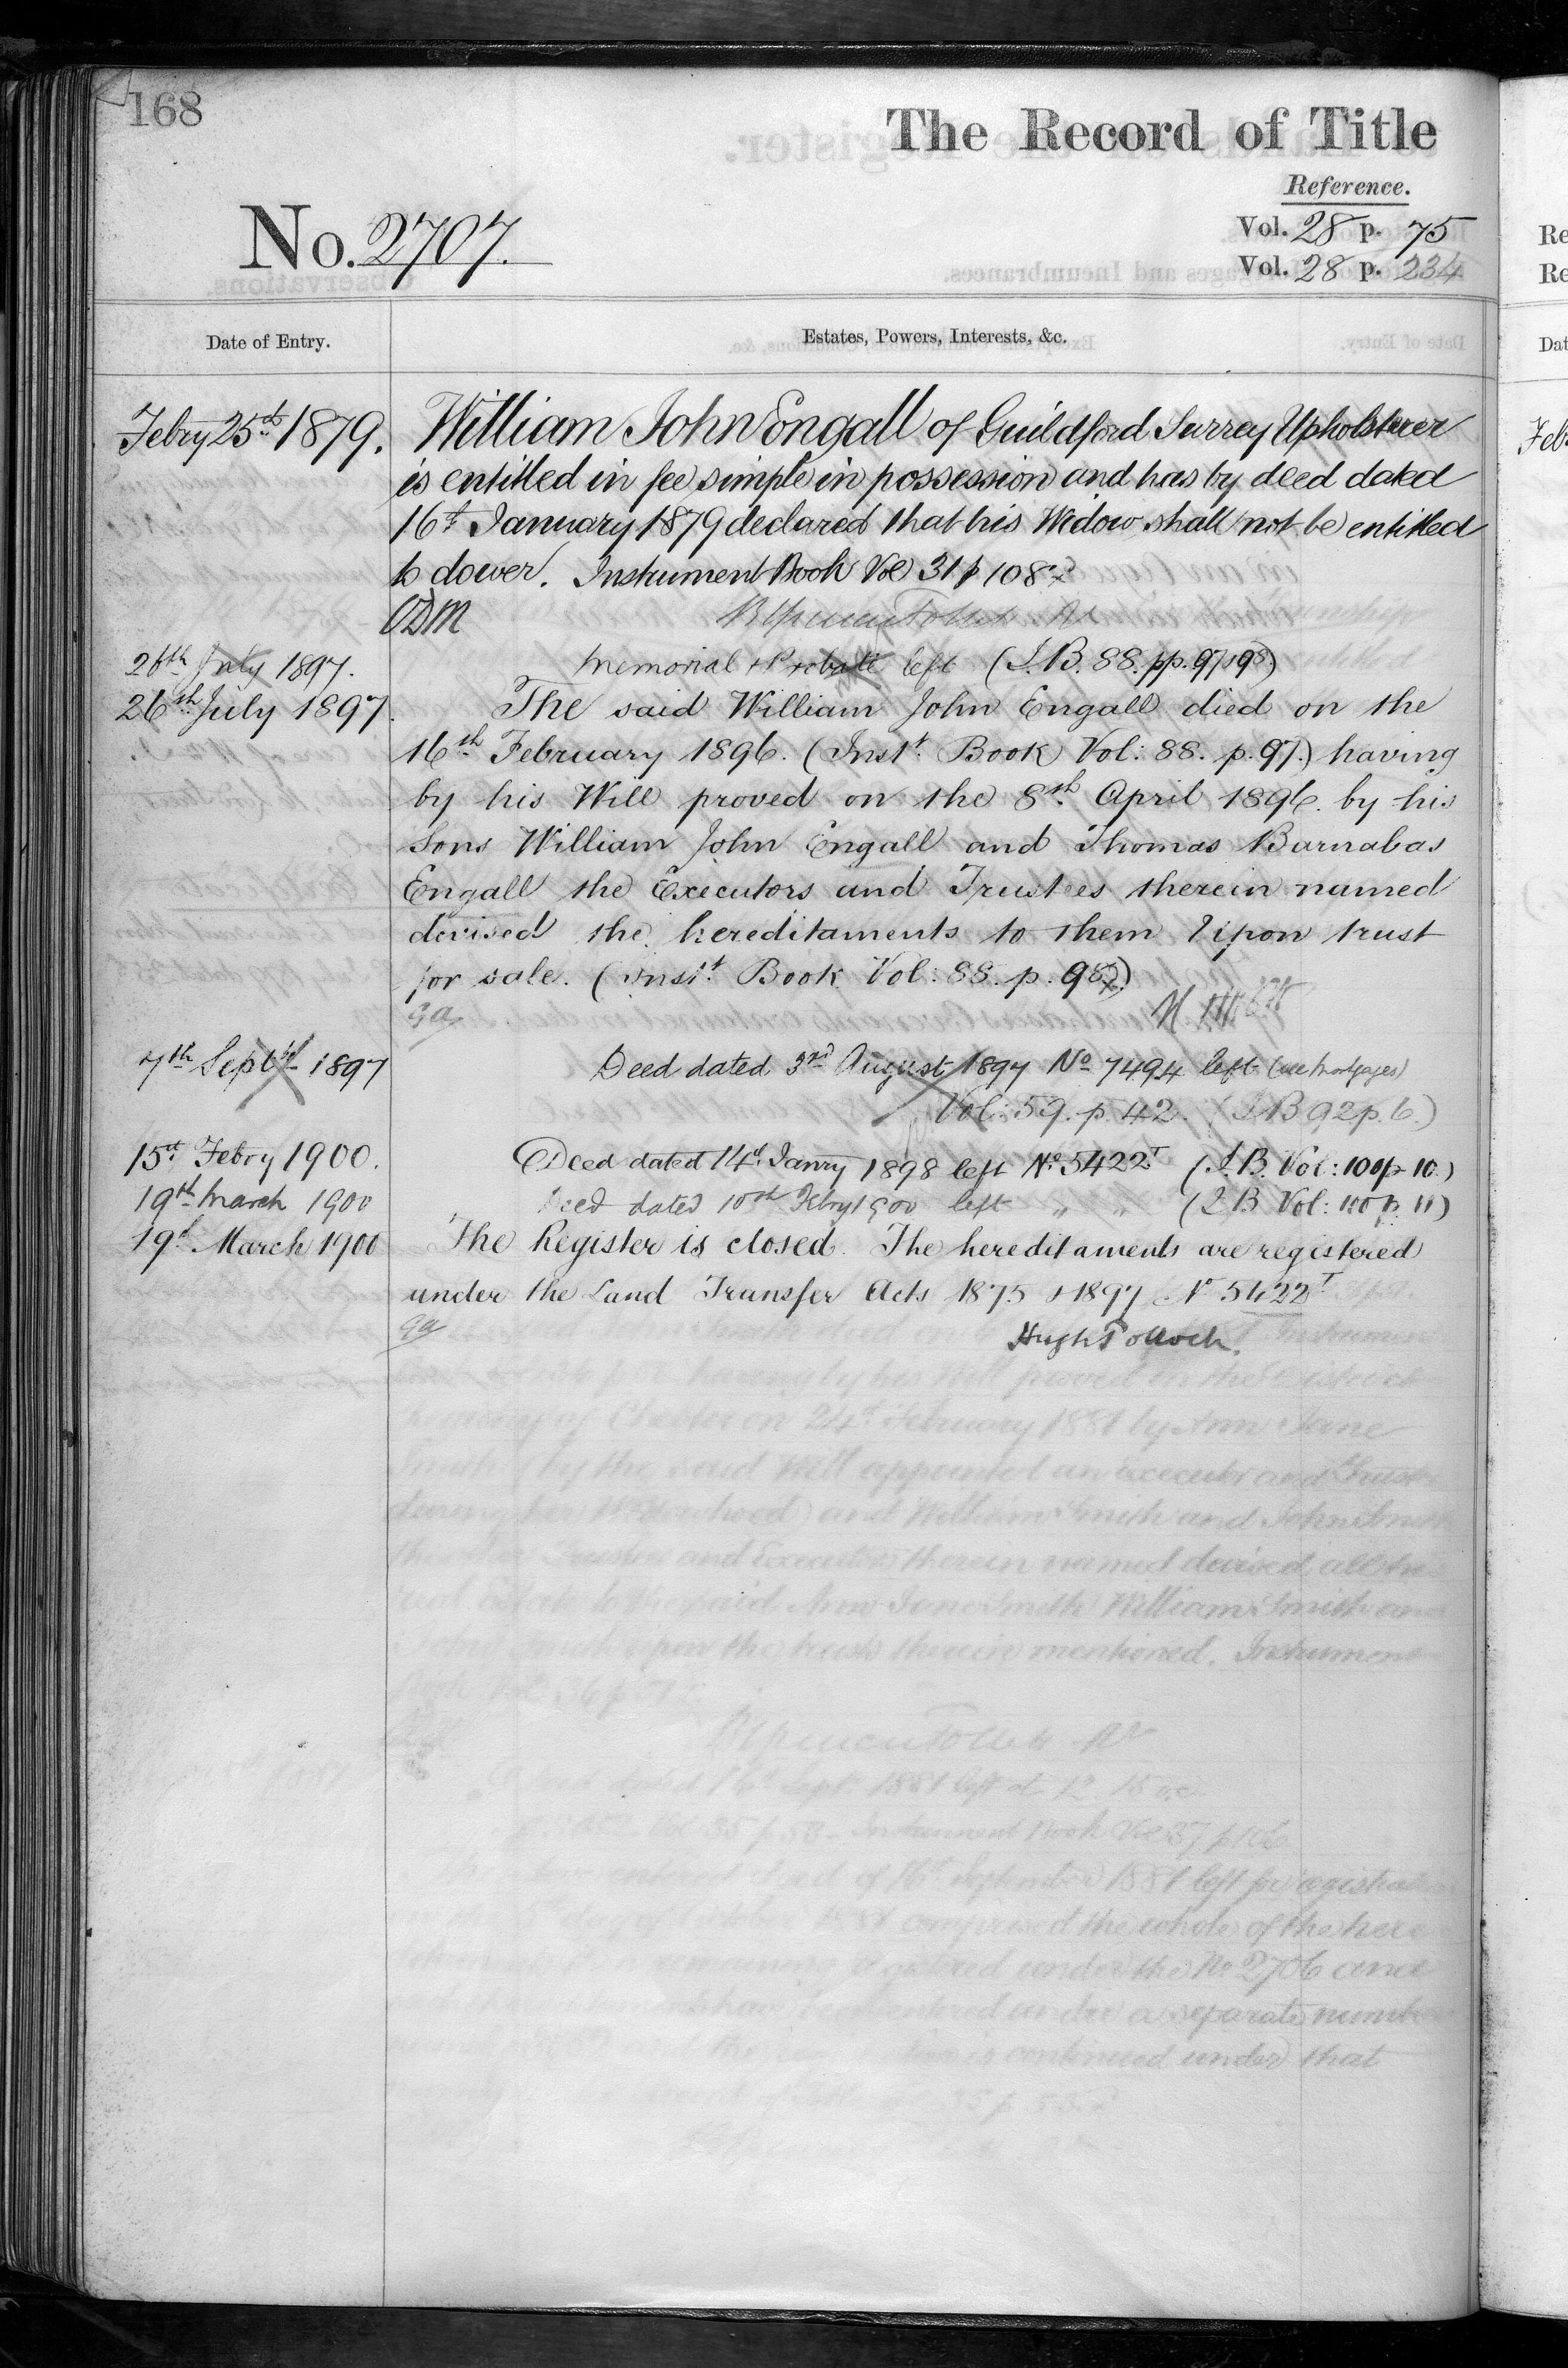 168
The Record of Title
Reference.
No. 2707.
Vol. 28 p. 75
Vol. 28 p. 234
Date of Entry.
Estates, Powers, Interests, &c.
Febry 25th 1879.
William John Engall of Guildford Surrey Upholsterer
is entitled in fee simple in possession and has by deed dated
16th January 1879 declared that his Widow shall not be entitled
to dower. Instrument Book Vol 31 p 108
26th July 1897.
Memorial & Probate left (I.B. 88. pp. 97, 98)
26th July 1897.
The said William John Engall died on the
16th February 1896. (Inst. Book Vol: 88. p. 97.) having
by his Will proved on the 8th April 1896. by his
Sons William John Engall and Thomas Barnabas
Engall the Executors and Trustees therein named
devised the hereditaments to them Upon trust
for sale. (Inst. Book Vol: 88. p. 98)
7th Septbr 1897
Deed dated 3rd August 1897 No 7494 left (see Mortgages)
Vol: 59. p. 42. (I B 92 p. 6.)
15th Febry 1900.
Deed dated 14th Janry 1898 left No 5422T (I.B. Vol: 100 p 10.)
19th March 1900
Deed dated 10th Febry 1900 left " " (I B Vol: 100 p. 11)
19th March 1900
The Register is closed. The hereditaments are registered
under the Land Transfer Acts 1875 & 1897 No 5422T
Hugh Pollock.